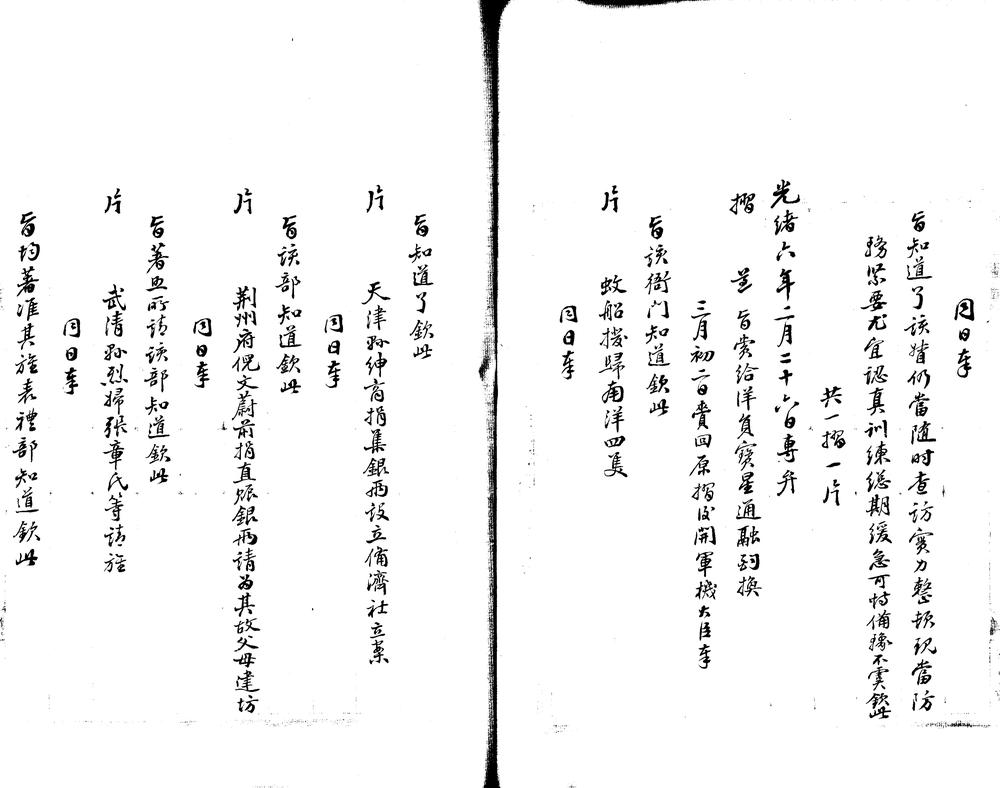 同日奉
旨知道了該督仍當隨时查訪實力整頓現當防
務緊要尤宜認真訓練總期緩急可恃備豫不虞欽此
共一摺一片
光緒六年二月二十六日專弁
摺 並 旨賞給洋員寶星通融酌換
三月初二日賫回原摺後開軍機大臣奉
旨該衙门知道欽此
片 蚊船撥歸南洋四隻
同日奉
旨知道了欽此
片 天津縣紳商捐集銀兩設立備濟社立案
同日奉
旨該部知道欽此
片 荆州府倪文蔚前捐直賑銀兩請为其故父母建坊
同日奉
旨著照所請該部知道欽此
片 武清縣烈婦張章氏等請旌
同日奉
旨均著准其旌表禮部知道欽此